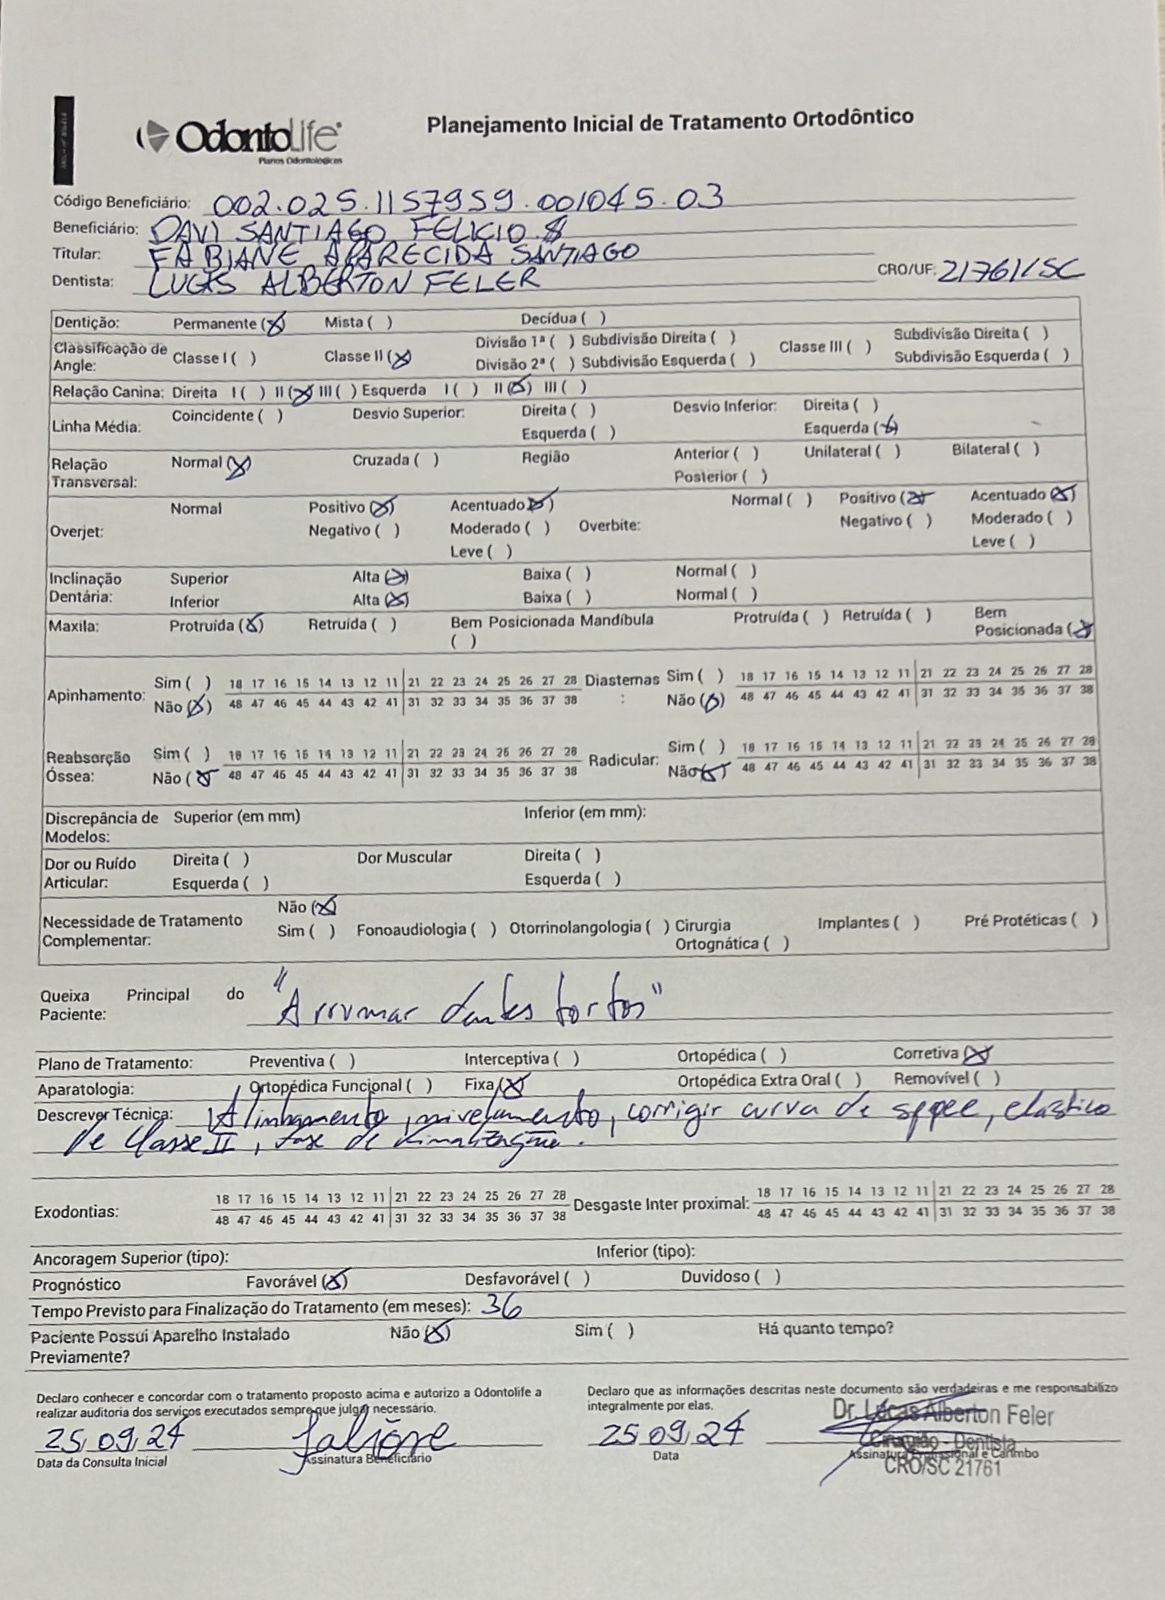 OdontoLife
Planos Odontológicos
Planejamento Inicial de Tratamento Ortodôntico
Código Beneficiário: 002.025.1157959.001045.03
Beneficiário: DAVI SANTIAGO FELICIO
Titular: FABIANE APARECIDA SANTIAGO
Dentista: LUCAS ALBERTON FELER CRO/UF: 21761/SC
Dentição: Permanente (X) Mista ( ) Decídua ( )
Classificação de Angle: Classe I ( ) Classe II (X) Divisão 1ª ( ) Subdivisão Direita ( ) Classe III ( ) Subdivisão Direita ( )
Divisão 2ª ( ) Subdivisão Esquerda ( ) Subdivisão Esquerda ( )
Relação Canina: Direita I ( ) II (X) III ( ) Esquerda I ( ) II (X) III ( )
Linha Média: Coincidente ( ) Desvio Superior: Direita ( ) Desvio Inferior: Direita ( )
Esquerda ( ) Esquerda (X)
Relação Transversal: Normal (X) Cruzada ( ) Região Anterior ( ) Unilateral ( ) Bilateral ( )
Posterior ( )
Overjet: Normal Positivo (X) Acentuado (X) Overbite: Normal ( ) Positivo (X) Acentuado (X)
Negativo ( ) Moderado ( ) Negativo ( ) Moderado ( )
Leve ( ) Leve ( )
Inclinação Dentária: Superior Alta (X) Baixa ( ) Normal ( )
Inferior Alta (X) Baixa ( ) Normal ( )
Maxila: Protruída (X) Retruída ( ) Bem Posicionada ( ) Mandíbula Protruída ( ) Retruída ( ) Bem Posicionada (X)
Apinhamento: Sim ( ) 18 17 16 15 14 13 12 11 21 22 23 24 25 26 27 28 Diastemas: Sim ( ) 18 17 16 15 14 13 12 11 21 22 23 24 25 26 27 28
Não (X) 48 47 46 45 44 43 42 41 31 32 33 34 35 36 37 38 Não (X) 48 47 46 45 44 43 42 41 31 32 33 34 35 36 37 38
Reabsorção Óssea: Sim ( ) 18 17 16 15 14 13 12 11 21 22 23 24 25 26 27 28 Radicular: Sim ( ) 18 17 16 15 14 13 12 11 21 22 23 24 25 26 27 28
Não (X) 48 47 46 45 44 43 42 41 31 32 33 34 35 36 37 38 Não (X) 48 47 46 45 44 43 42 41 31 32 33 34 35 36 37 38
Discrepância de Modelos: Superior (em mm) Inferior (em mm):
Dor ou Ruído Articular: Direita ( ) Dor Muscular Direita ( )
Esquerda ( ) Esquerda ( )
Necessidade de Tratamento Complementar: Não (X)
Sim ( ) Fonoaudiologia ( ) Otorrinolangologia ( ) Cirurgia Ortognática ( ) Implantes ( ) Pré Protéticas ( )
Queixa Principal do Paciente: "Arrumar dentes tortos"
Plano de Tratamento: Preventiva ( ) Interceptiva ( ) Ortopédica ( ) Corretiva (X)
Aparatologia: Ortopédica Funcional ( ) Fixa (X) Ortopédica Extra Oral ( ) Removível ( )
Descrever Técnica: Alinhamento, nivelamento, corrigir curva de spee, elastico
de Classe II, fase de finalização.
Exodontias: 18 17 16 15 14 13 12 11 21 22 23 24 25 26 27 28 Desgaste Inter proximal: 18 17 16 15 14 13 12 11 21 22 23 24 25 26 27 28
48 47 46 45 44 43 42 41 31 32 33 34 35 36 37 38 48 47 46 45 44 43 42 41 31 32 33 34 35 36 37 38
Ancoragem Superior (tipo): Inferior (tipo):
Prognóstico Favorável (X) Desfavorável ( ) Duvidoso ( )
Tempo Previsto para Finalização do Tratamento (em meses): 36
Paciente Possui Aparelho Instalado Previamente? Não (X) Sim ( ) Há quanto tempo?
Declaro conhecer e concordar com o tratamento proposto acima e autorizo a Odontolife a
realizar auditoria dos serviços executados sempre que julgar necessário.
Declaro que as informações descritas neste documento são verdadeiras e me responsabilizo
integralmente por elas.
25,09,24
Data da Consulta Inicial
Assinatura Beneficiário
25 09,24
Data
Dr. Lucas Alberton Feler
Cirurgião - Dentista
Assinatura Profissional e Carimbo
CRO/SC 21761